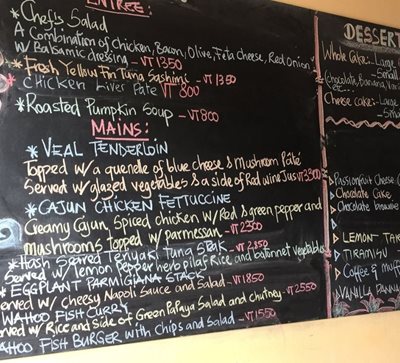 ENTREE:
*Chefis Salad
A Combination of Chicken, Bacon, Olive, Feta Cheese, Red Onion,
W/ Balsamic dressing - VT 1350
*Fresh Yellow Fin Tuna Sashimi - VT 1350
*Chicken Liver Pate - VT 800
*Roasted Pumpkin Soup - VT 800
MAINS:
*VEAL TENDERLOIN
Topped w/ a quenelle of blue cheese & Mushroom Pâté
Served w/ glazed vegetables & a side of Red wine Jus VT 3300
*CAJUN CHICKEN FETTUCCINE
Creamy Cajun, Spiced chicken w/ Red & green pepper and
mushrooms topped w/ parmesan. - VT 2300
*Hash Seared Teriyaki Tuna Steak - VT
Served w/ lemon pepper herb pilaf Rice and batonnet vegetables
*EGGPLANT PARMIGIANA STACK
erved w/ cheesy Napoli Sauce and Salad - VT 1850
WAHOO FISH CURRY
erved w/ Rice and Side of Green Papaya Salad and chutney - VT 2550
AHOO FISH BURGER with Chips and Salad - VT 1550
DESSERT
Whole Cake: - Large
- Small
Chocolate, Banana,
etc...
Cheese cake: - Large
- Small
Passionfruit Cheese
Chocolate Cake
Chocolate brownie
LEMON TAR
TIRAMISU
Coffee & muff
VANILLA PANNA